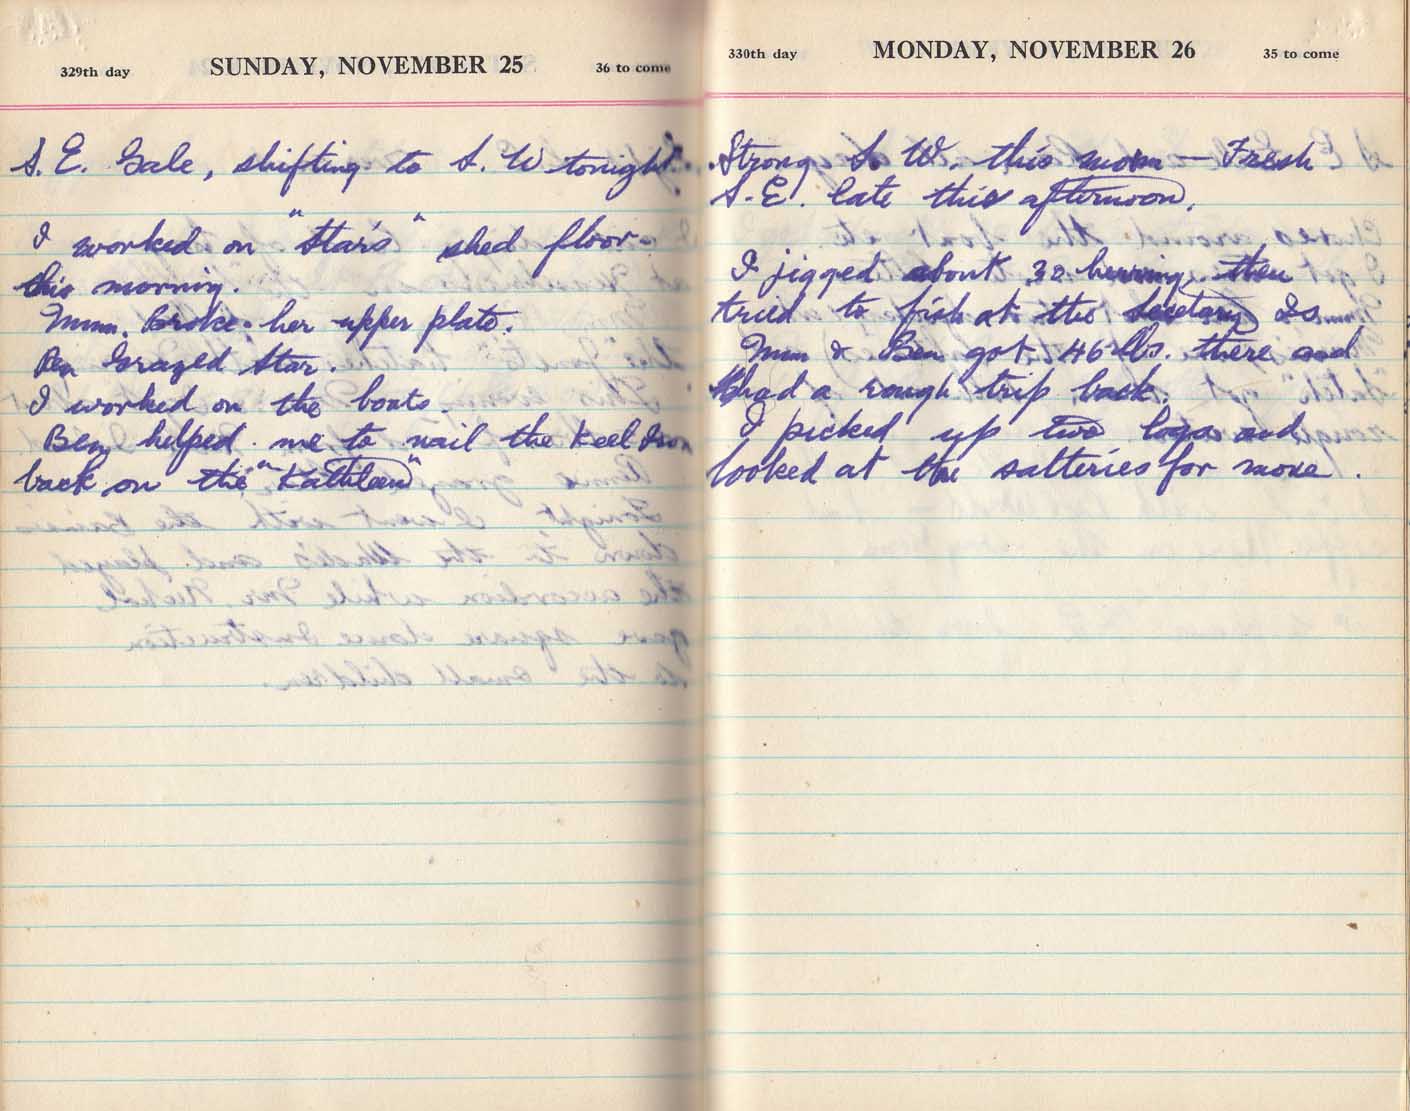 329th day SUNDAY, NOVEMBER 25 36 to come
S. E. Gale, shifting to S. W tonight.
I worked on "Star's" shed floor
this morning.
Mum. Broke her upper plate.
Ben Grazed Star.
I worked on the boats.
Ben helped me to nail the Keel Iron
back on the "Kathleen".
330th day MONDAY, NOVEMBER 26 35 to come
Strong S. W. this morn — Fresh
S.E. late this afternoon.
I jigged about 32 herring, then
tried to fish at the Secetary Is.
Mum & Ben got 46 lbs. there and
had a rough trip back.
I picked up two logs and
looked at the batteries for more.